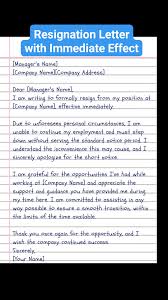 Resignation Letter
with Immediate Effect
[Manager's Name]
[Company Name][Company Address]
Dear [Manager's Name],
I am writing to formally resign from my position at
[Company Name], effective immediately.
Due to unforeseen personal circumstances, I am
unable to continue my employment and must step
down without serving the standard notice period. I
understand the inconvenience this may cause, and I
sincerely apologise for the short notice.
I am grateful for the opportunities I've had while
working at [Company Name] and appreciate the
support and guidance you have provided me during
my time here. I am committed to assisting in any
way possible to ensure a smooth transition, within
the limits of the time available.
Thank you once again for the opportunity, and I
wish the company continued success.
Sincerely,
[Your Name]